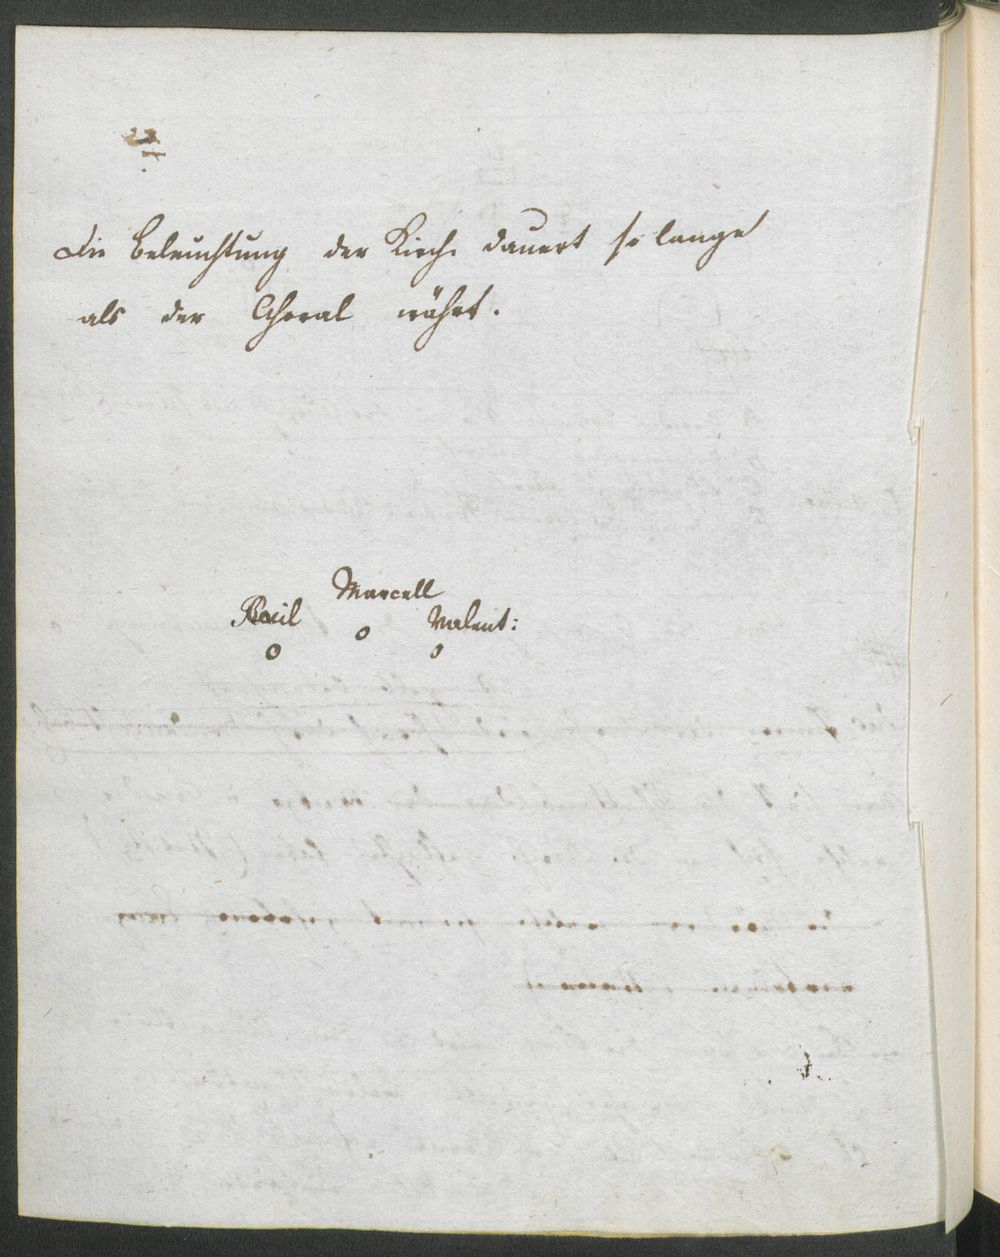 Die Beleuchtung der Kirche dauert so lange
als der Choral währt.
Marcell
Basil Valent:
o
o o